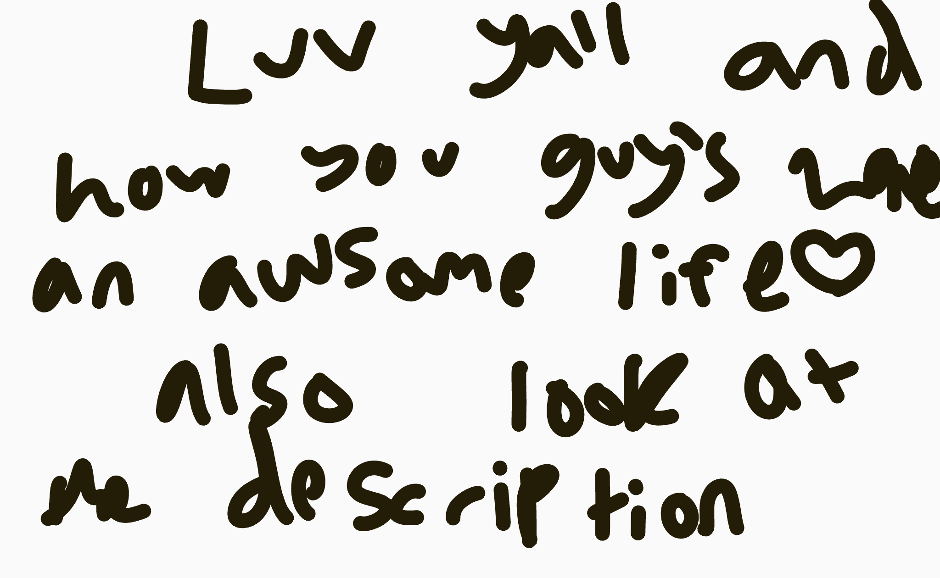 Luv yall and
how you guy's have
an awsome life♡
also look at
the description